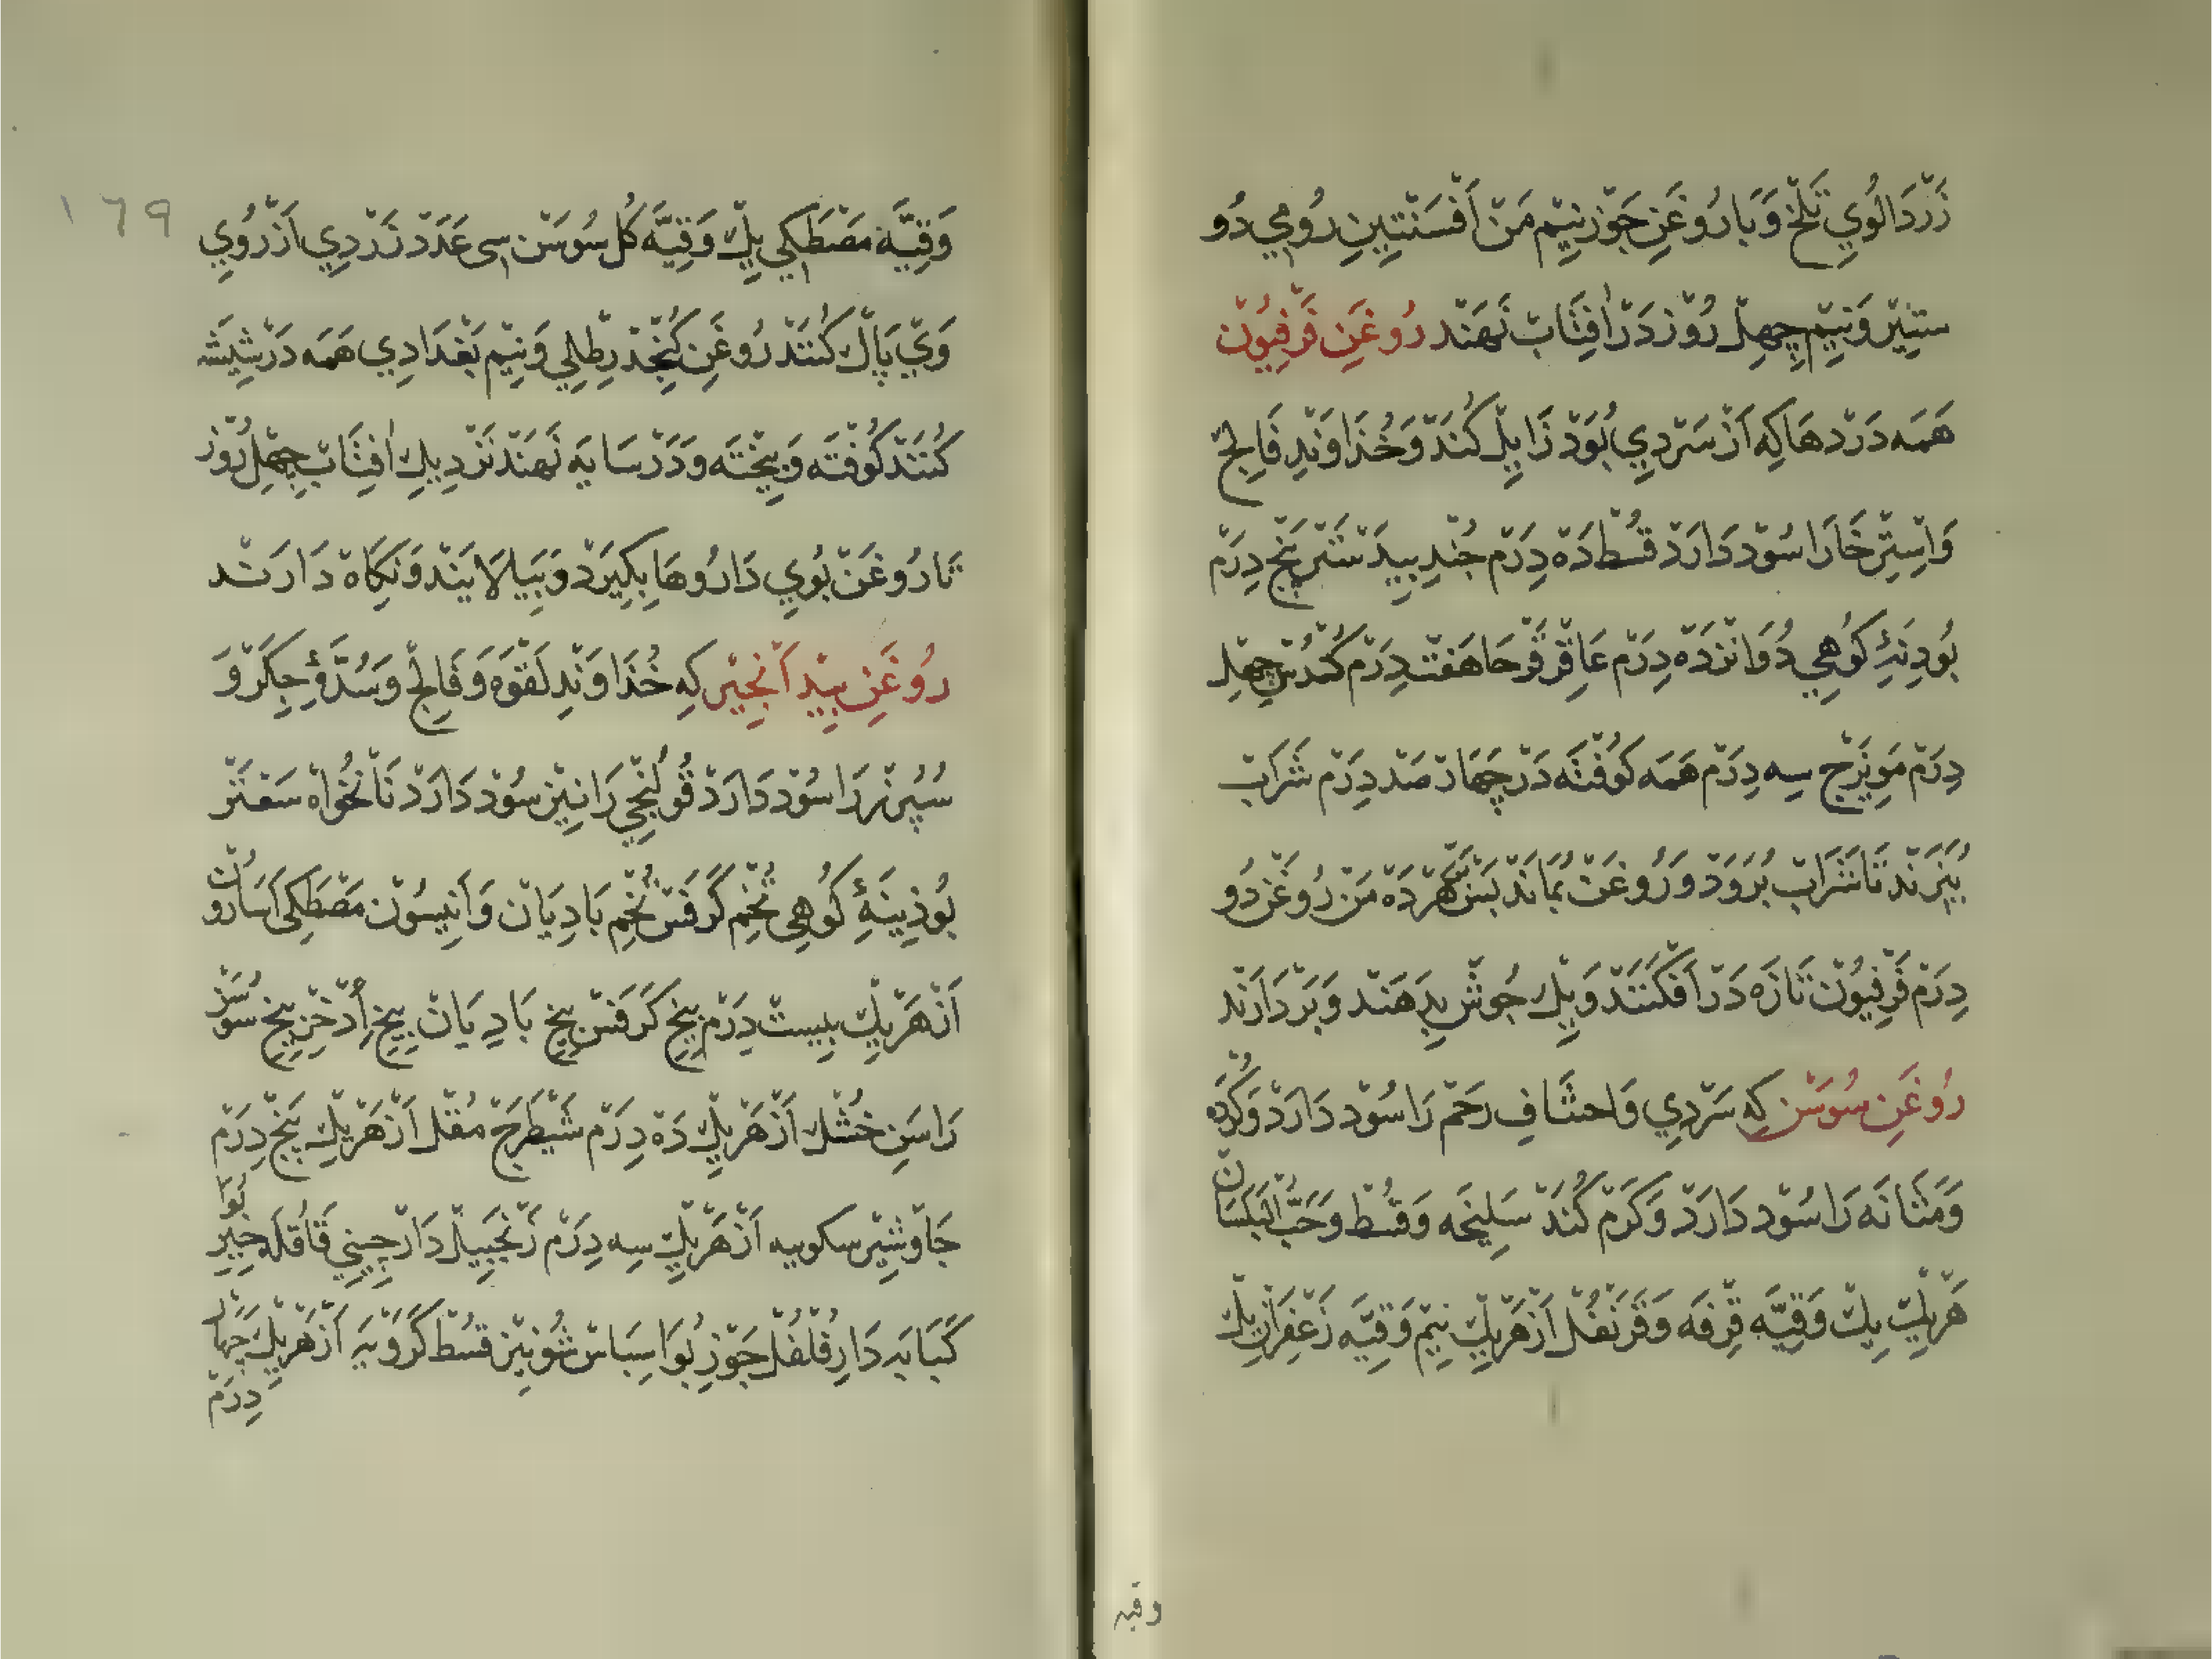 زَرْدَالُويِ تَلْخْ وَبَا رُوغَنِ جَوْز نِيْم مَنْ اَفْسَنْتِينِ رُومِي دُو
ستِيْر وَنِيْم چِهِلْ رُوْز دَرْ اٰفِتَابْ نَهَنْد رُوغَنِ فَرْفِيُوْن
هَمَه دَرْدهَا كِه اَزْ سَرْدِي بُوَدْ زَايِلْ كُنَدْ وَخُذَاوَنْدِ فَالِجْ
وَاِسْتِرْخَارَا سُوْد دَارَدْ قُسْطْ دَهْ دِرَمْ جُنْدِ بِيدَسْتَرْ پَنْجْ دِرَمْ
بُودِنَهٔ كُوهِي دُوَانْزدَهْ دِرَمْ عَاقِرْقَرْحَا هَفْتْ دِرَمْ كُنْدُسْ چِهِلْ
دِرَمْ مَوِيْزَجْ سِه دِرَمْ هَمَه كُوفْتَه دَرْ چَهَارْ صَدْ دِرَمْ شَرَابْ
بِپَزَنْد تَا شَرَابْ بُرَوَدْ وَرُوغَنْ بُمَانَدْ بَسْ هَرْ دَهْ مَنْ رُوغَنْ دُو
دِرَمْ فَرْفِيُوْن تَازَه دَرْ اَفْكَنَنْد وَيِكْ جُوشْ بِدِهَنْد وَبَرْدَارَنْد
رُوغَنِ سُوسَنْ كِه سَرْدِي وَاختنَافِ رَحَمْ رَا سُوْد دَارَدْ وَكُرْدَه
وَمَثَانَه رَا سُوْد دَارَدْ وَكَرَمْ كُنَدْ سَلِيخَه وَقُسْطْ وَحَبُّ الْبَلَسَانْ
هَرْيِكْ يِكْ وَقِيَّه قِرْفَه وَقَرَنْفُلْ اَزْ هَرْيِكْ نِيْم وَقِيَّه زَعْفِرَانْ يِكْ
وقیه
١٦٩
وَقِيَّه مَصْطَكِي يِكْ وَقِيَّه كُلِ سُوسَنْ سِي عَدَدْ زَرْدِي اَزْ رُويِ
وَيْ پَاكْ كُنَنْدْ رُوغَنِ كُنْجُذْ رِطْلِي وَنِيْم بَغْدَادِي هَمَه دَرْ شِيشَه
كُنَنْدْ كُوفْتَه وَبِيخْتَه وَدَرْ سَايَه نَهَنْدْ نَزْدِيكِ اٰفِتَابْ چِهِلْ رُوْز
تَا رُوغَنْ بُويِ دَارُوهَا بِكِيرَدْ وَبَپَالَايَنْدْ وَنِكَاهْ دَارَنْد
رُوغَنِ بِيْد اَنْجِيْر كِه خُذَاوَنْدِ لَقْوَه وَفَالِجْ وَسُدَّهٔ جِكَرْ وَ
سُپُرْزْ رَا سُوْد دَارَدْ قُولَنْجِي رَا نِيْز سُوْد دَارَدْ نَانْخُوَاهْ سَعْتَرْ
بُوذِينَهٔ كُوهِي تُخْمِ كَرَفَسْ تُخْمِ بَادِيَانْ وَانِيسُوْن مَصْطَكِي اَسَارُوْن
اَزْ هَرْيِكْ بِيسْتْ دِرَمْ بِيخِ كَرَفَسْ بِيخِ بَادِيَانْ بِيخِ اِدْخِرْ بِيخِ سُوسَنْ
رَاسَنِ خُشْكْ اَزْ هَرْيِكْ دَهْ دِرَمْ شَيْطَرَجْ مُقْلْ اَزْ هَرْيِكْ پَنْجْ دِرَمْ
جَاوْشِيْر سكوبيه اَزْ هَرْيِكْ سِه دِرَمْ زَنْجَبِيلْ دَارْچِينِي قَاقُلَه خِيرْبُوَا
كَبَابَه دَارِفُلْفُلْ جَوْزِ بُوَا سِبَاسْ شُونِيْز قُسْطْ كَرَوْيَه اَزْ هَرْيِكْ چَهَارْ
دِرَمْ